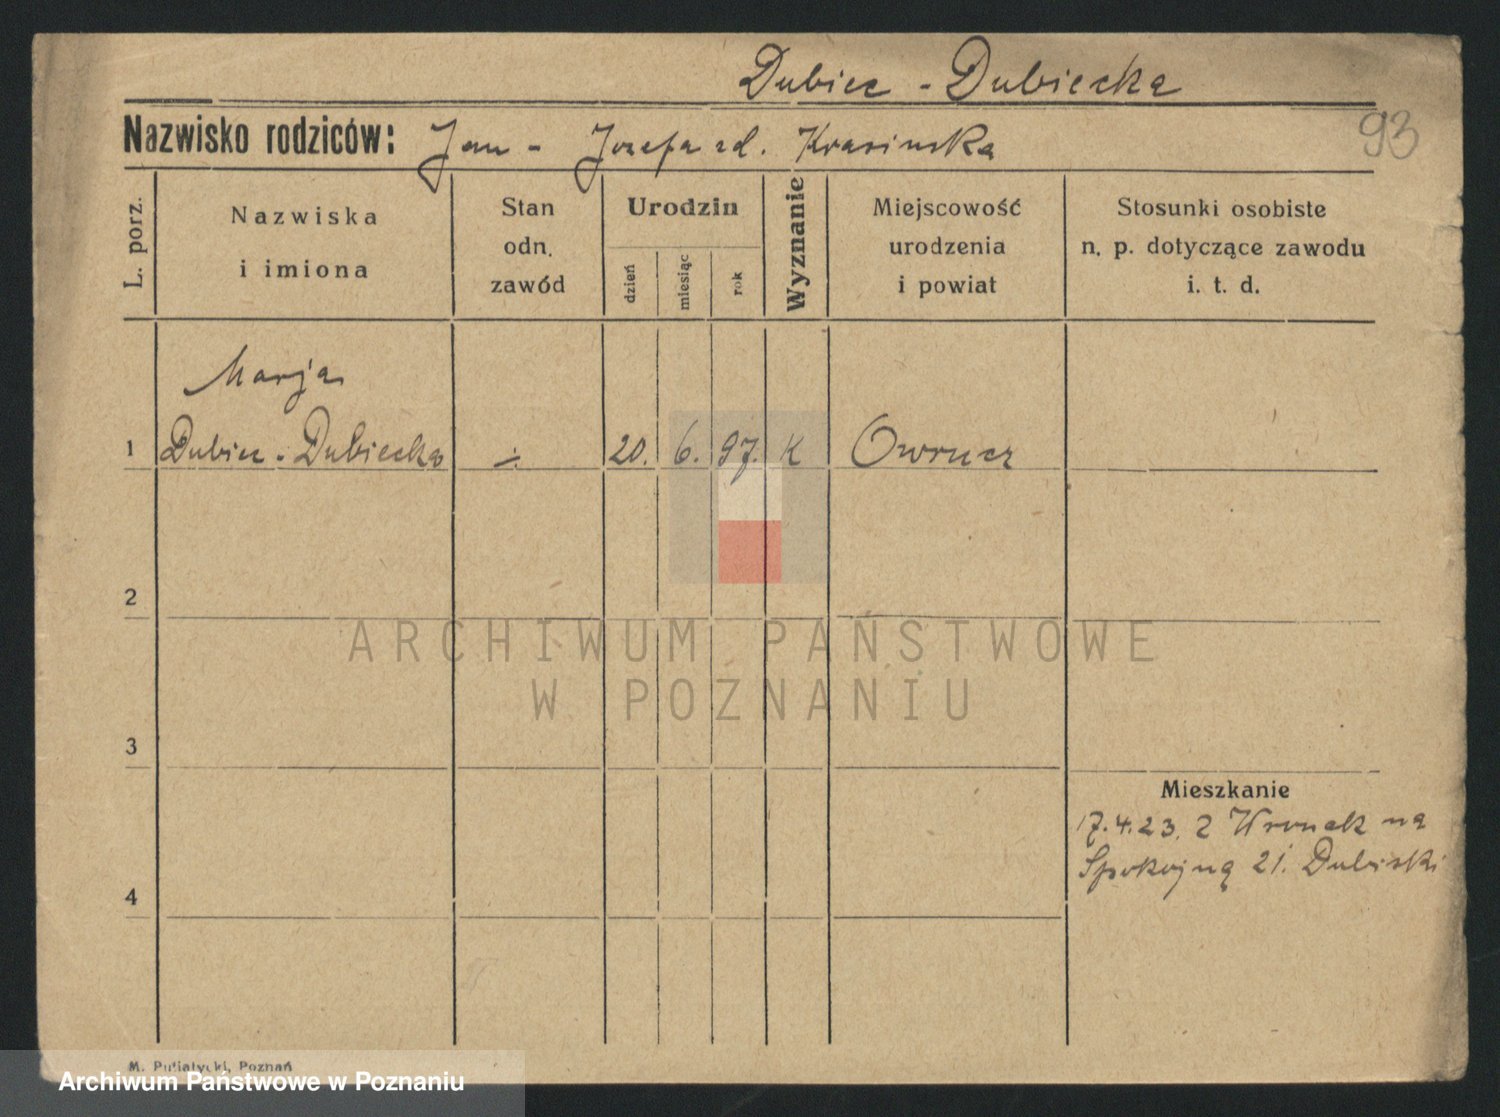 Dubiec - Dubiecka
Nazwisko rodziców: Jan - Jozefa zd. Krasinska
93
L. porz.
Nazwiska
i imiona
Stan
odn.
zawód
Urodzin
dzień
miesiąc
rok
Wyznanie
Miejscowość
urodzenia
i powiat
Stosunki osobiste
n. p. dotyczące zawodu
i. t. d.
Marja
1 Dubiec - Dubiecka ÷ 20. 6. 97. K Owrucz
2
ARCHIWUM PAŃSTWOWE
W POZNANIU
3
Mieszkanie
17.4.23. z Wronek na
Spokojną 21. Dubiski
4
M. Putiatycki, Poznań
Archiwum Państwowe w Poznaniu